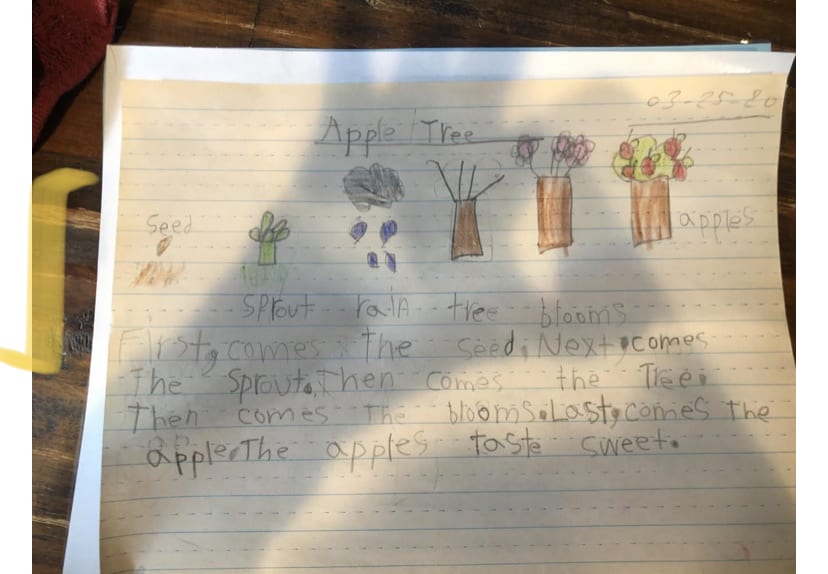 03-25-20
Apple Tree
seed
apples
sprout rain tree blooms
First, comes the seed. Next, comes
the sprout. Then comes the Tree.
Then comes the blooms. Last, comes the
apple. The apples taste sweet.